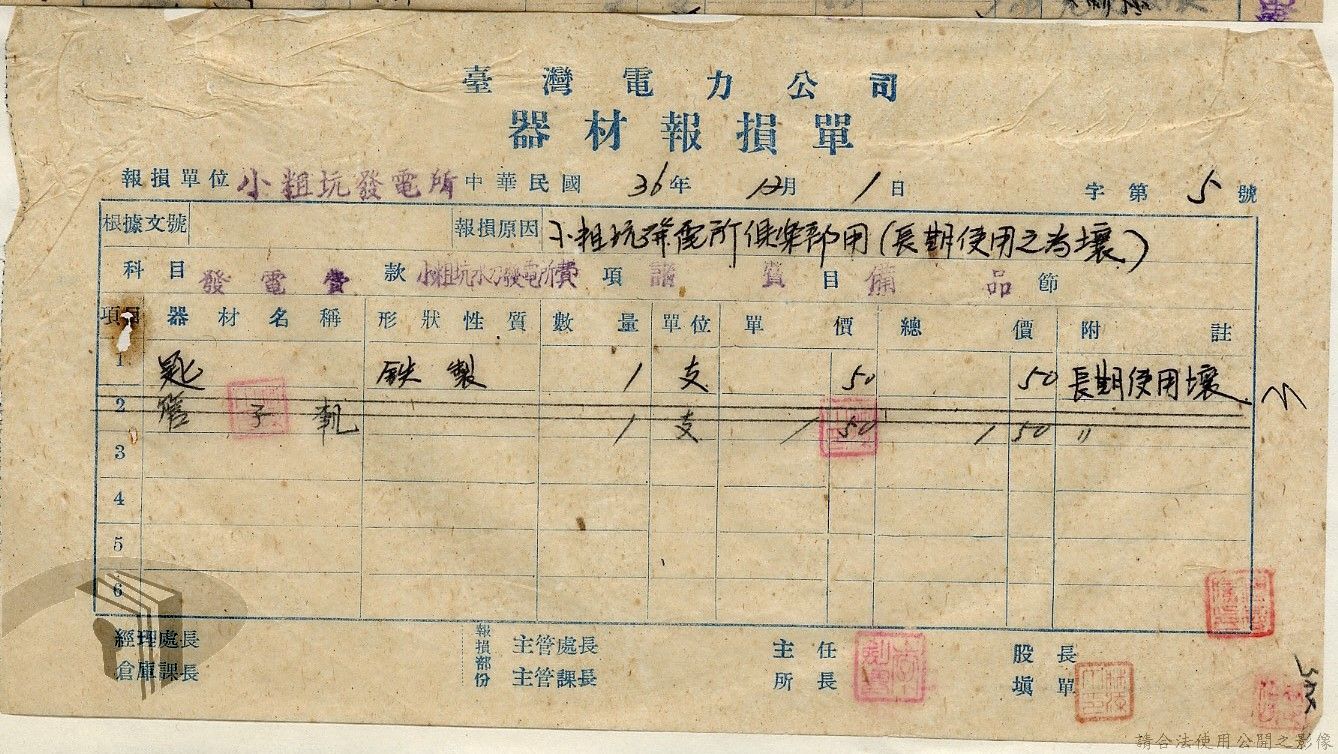 臺灣電力公司
器材報損單
報損單位 小粗坑發電所 中華民國 36年 12月 1日 字第 5 號
根據文號 報損原因 小粗坑發電所俱樂部用(長期使用之為壞)
科目 發電費 款 小粗坑水力發電所費 項 諸費 目 備品 節
項 器材名稱 形狀性質 數量 單位 單價 總價 附註
1 匙 鉄製 1 支 50 50 長期使用壞
2 子 1 支 1 50 1 50 〃
3
4
5
6
經理處長 報損部份 主管處長 主任 股長
倉庫課長 主管課長 所長 填單
請合法使用公開之影像